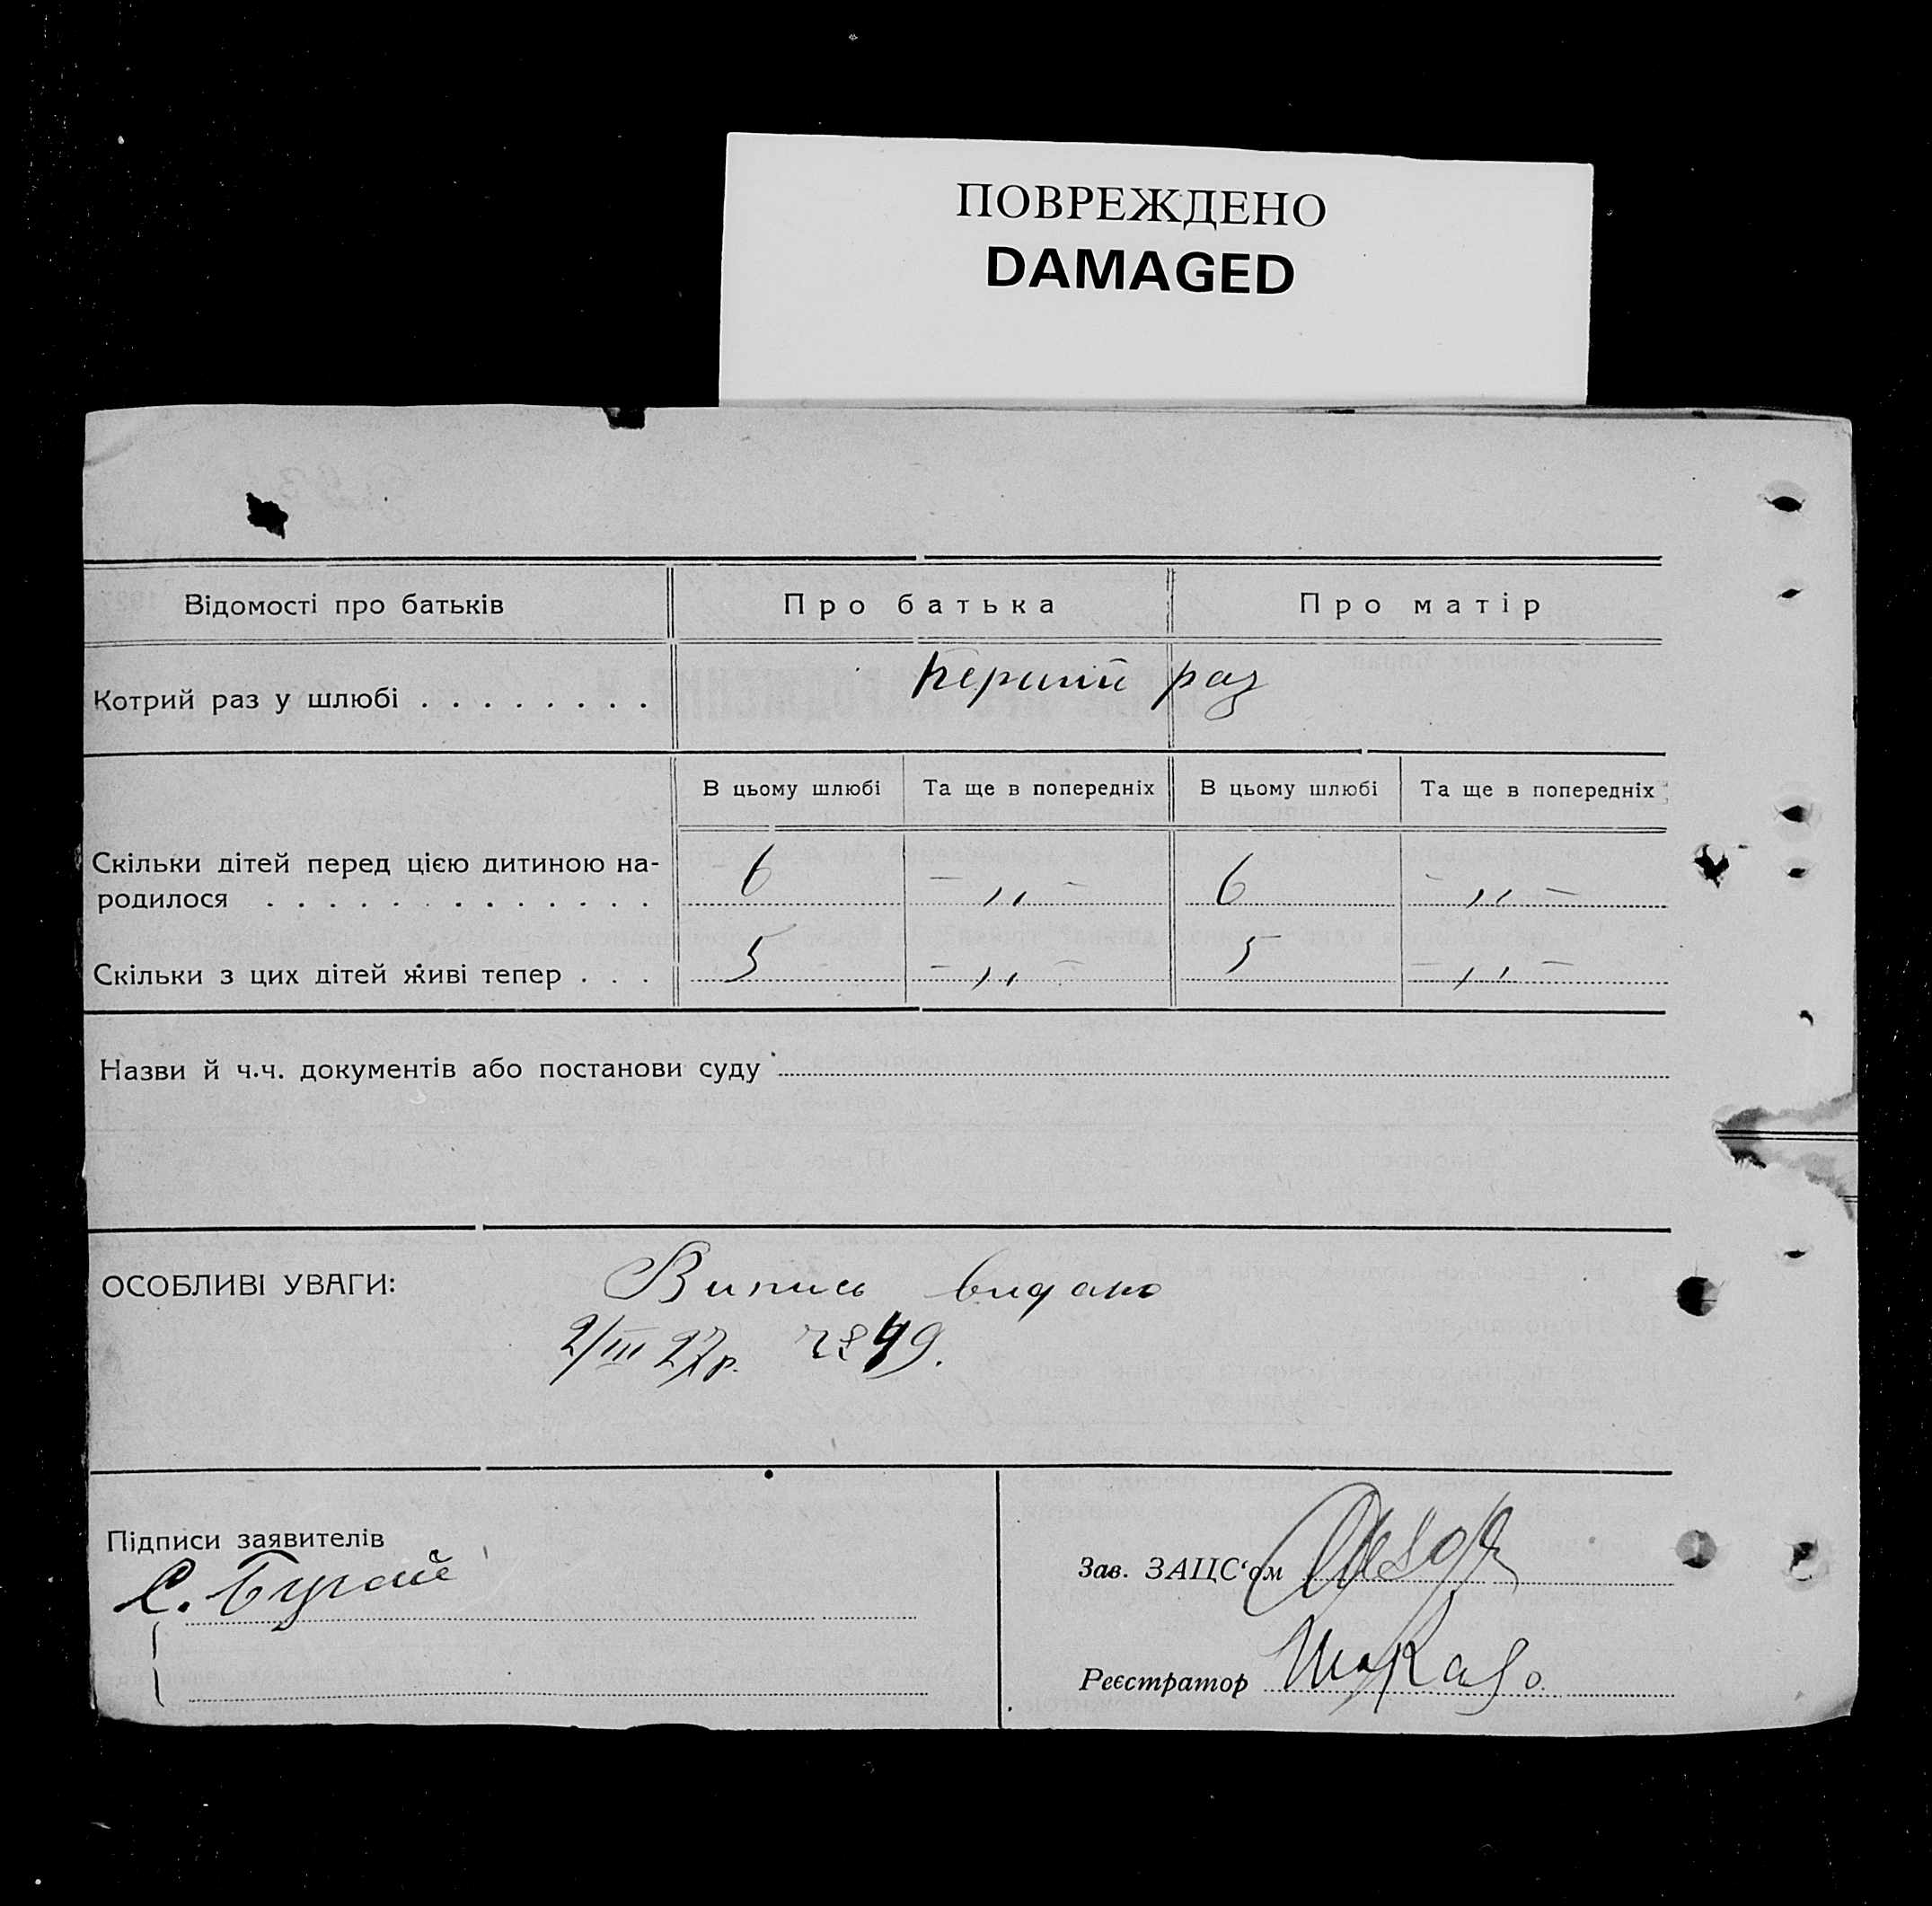 ПОВРЕЖДЕНО
DAMAGED
Відомості про батьків Про батька Про матір
Котрий раз у шлюбі . . . . . . . . Перший раз
В цьому шлюбі Та ще в попередніх В цьому шлюбі Та ще в попередніх
Скільки дітей перед цією дитиною на-
родилося . . . . . . . . . . . . . . 6 — ,, — 6 — ,, —
Скільки з цих дітей живі тепер . . . 5 — ,, — 5 — ,, —
Назви й ч.ч. документів або постанови суду
ОСОБЛИВІ УВАГИ: Випись видано
2/III 27 р. 49.
Підписи заявителів
С.
Зав. ЗАЦС‘ом
Реєстратор